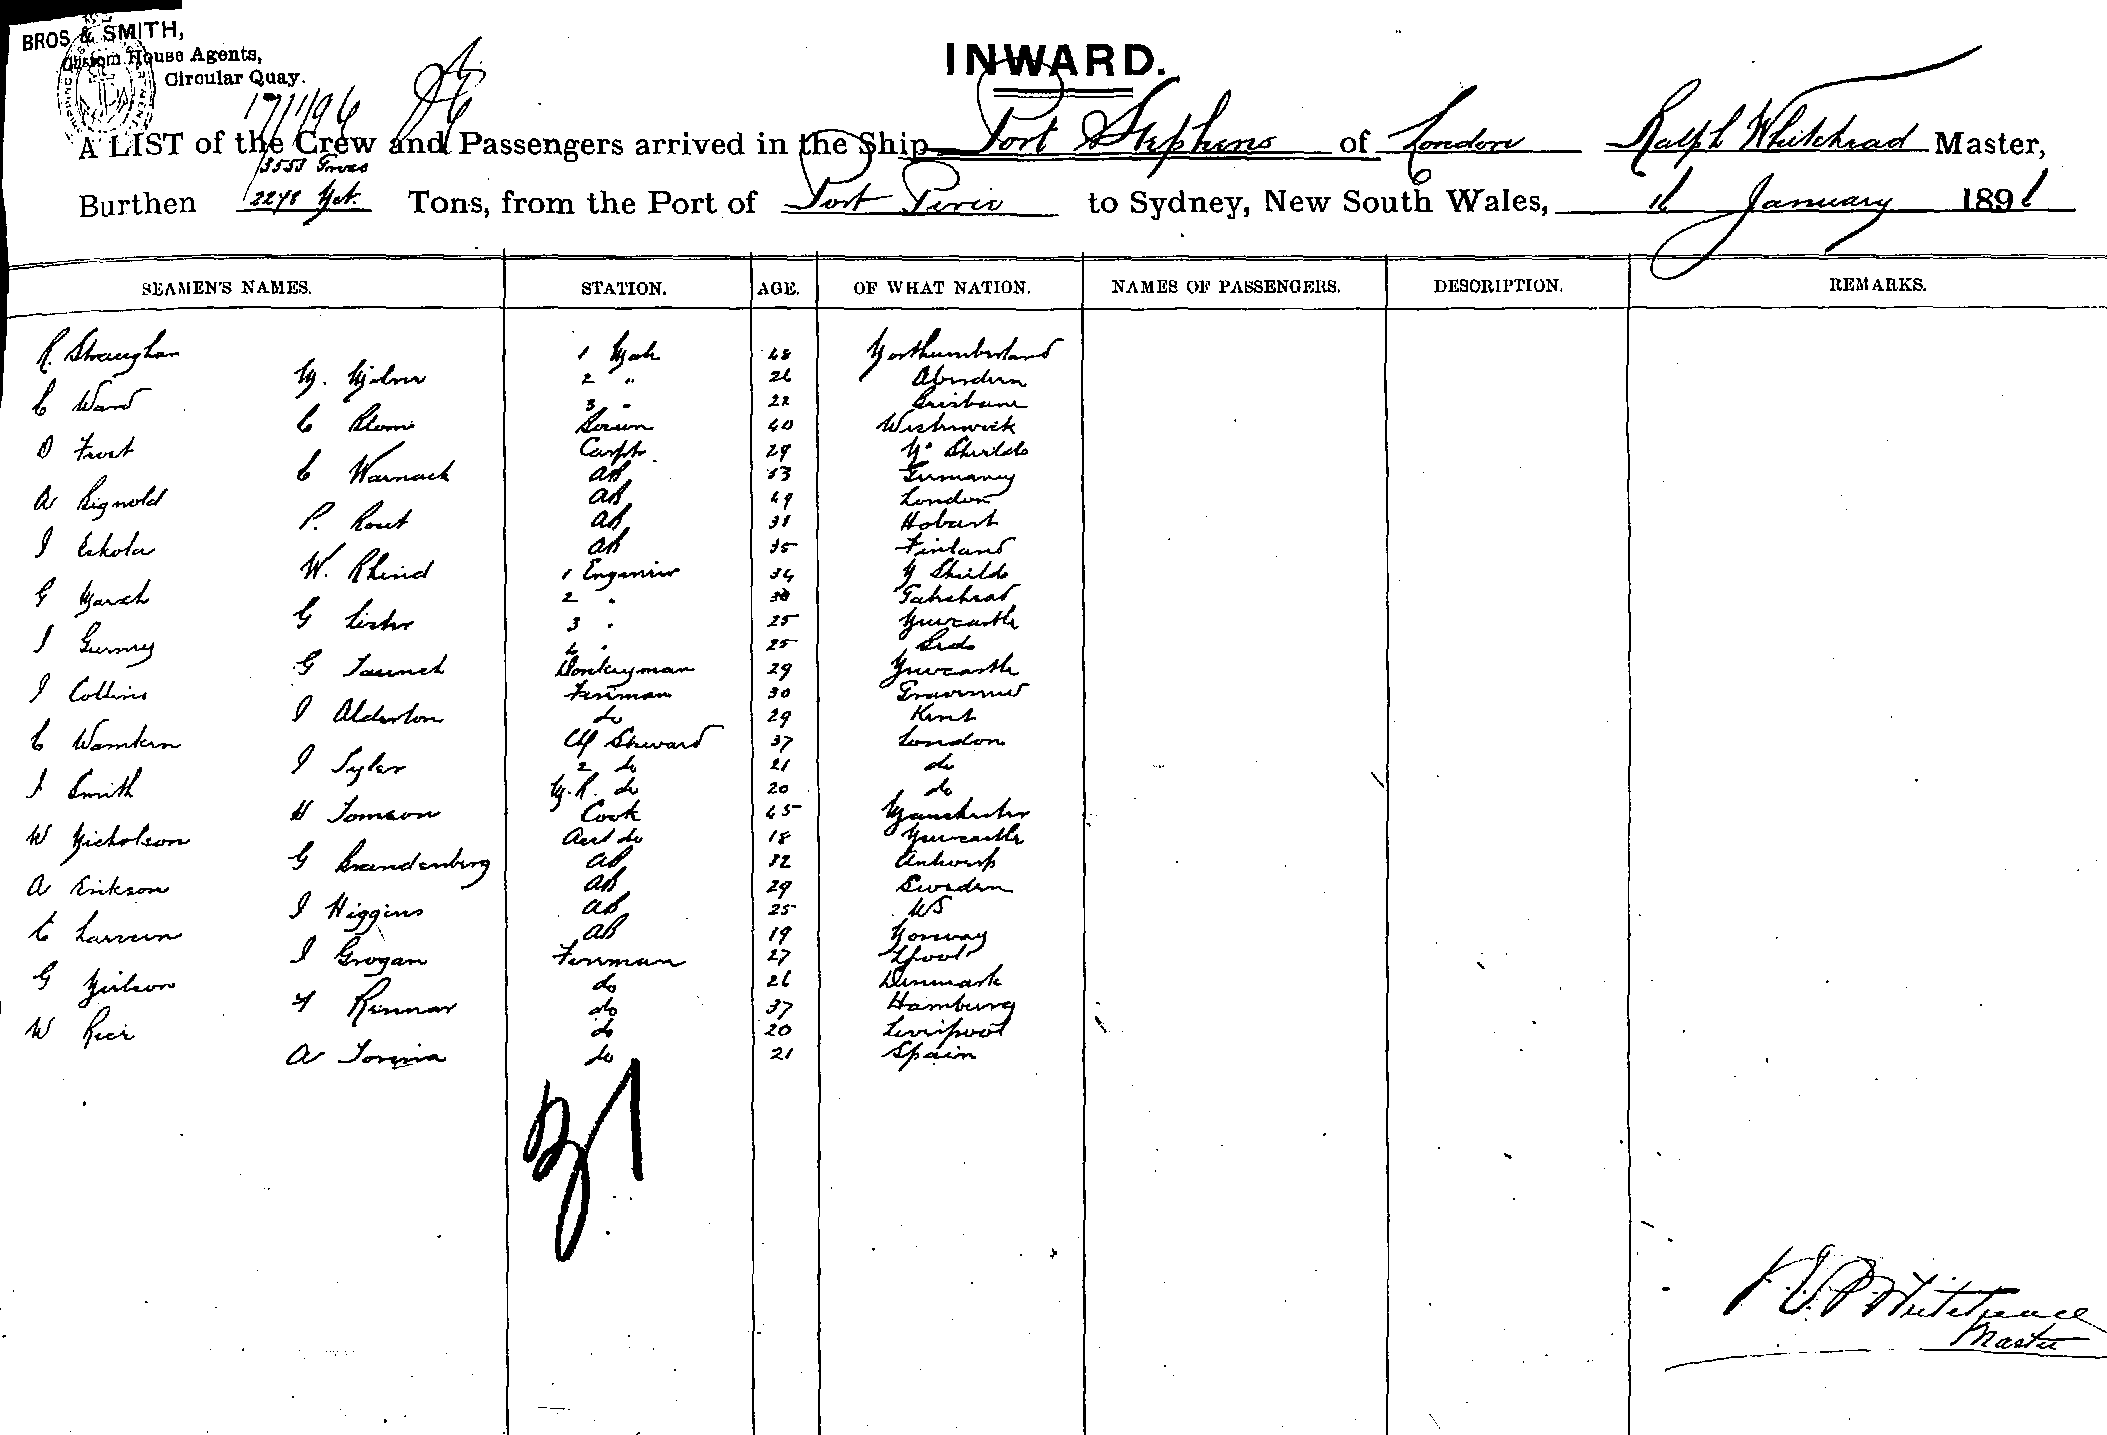 BROS & SMITH,
Custom House Agents,
Circular Quay.
17/1/96
INWARD.
A LIST of the Crew and Passengers arrived in the Ship Port Stephens of London Ralph Whitehead Master,
3553 Gross
Burthen 2278 Net. Tons, from the Port of Port Pirie to Sydney, New South Wales, 16 January 1896
SEAMEN'S NAMES. STATION. AGE. OF WHAT NATION. NAMES OF PASSENGERS. DESCRIPTION. REMARKS.
R. Straughan 1 Mate 48 Northumberland
M. Milne 2 " 26 Aberdeen
C Ward 3 " 22 Brisbane
C Blom Bosun 40 Westerwick
D Frost Carpt. 29 No Shields
C Warnack AB 53 Germany
A Rignold AB 49 London
P. Rout AB 38 Hobart
J Eskola AB 35 Finland
W. Rhind 1 Engineer 34 N Shields
G March 2 " 30 Gateshead
G Lister 3 " 25 Newcastle
J Gurney 4 " 25 Leeds
G Taunch Donkeyman 29 Newcastle
J Collins Fireman 30 Gravesend
J Alderton do 29 Kent
C Wamken Chf Steward 37 London
J Tyler 2 do 21 do
J Smith M.R. do 20 do
H Tomson Cook 45 Manchester
W Nicholson Asst do 18 Newcastle
G Brandenberg AB 32 Antwerp
A Erikson AB 29 Sweden
J Higgins AB 25 US
C Larsen AB 19 Norway
J Grogan Fireman 27 Lpool
G Neilson do 26 Denmark
F Rinnar do 37 Hamburg
W Rice do 20 Liverpool
A Torsina do 21 Spain
Whitehead
Master